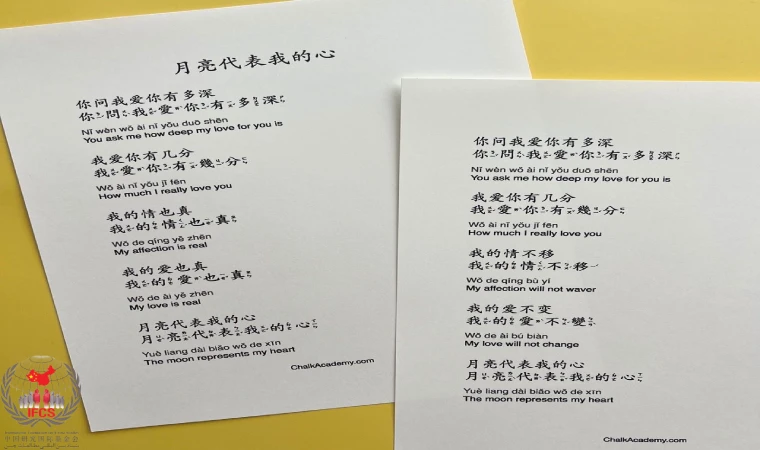 月亮代表我的心
你问我爱你有多深
你問我愛你有多深
Nǐ wèn wǒ ài nǐ yǒu duō shēn
You ask me how deep my love for you is
我爱你有几分
我愛你有幾分
Wǒ ài nǐ yǒu jǐ fēn
How much I really love you
我的情也真
我的情也真
Wǒ de qíng yě zhēn
My affection is real
我的爱也真
我的愛也真
Wǒ de ài yě zhēn
My love is real
月亮代表我的心
月亮代表我的心
Yuè liang dài biǎo wǒ de xīn
The moon represents my heart
ChalkAcademy.com
你问我爱你有多深
你問我愛你有多深
Nǐ wèn wǒ ài nǐ yǒu duō shēn
You ask me how deep my love for you is
我爱你有几分
我愛你有幾分
Wǒ ài nǐ yǒu jǐ fēn
How much I really love you
我的情不移
我的情不移
Wǒ de qíng bù yí
My affection will not waver
我的爱不变
我的愛不變
Wǒ de ài bú biàn
My love will not change
月亮代表我的心
月亮代表我的心
Yuè liang dài biǎo wǒ de xīn
The moon represents my heart
ChalkAcademy.com
IFCS